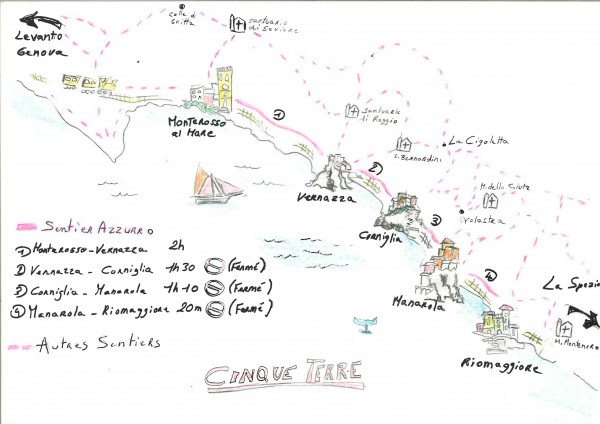 Levanto
Genova
Colle di
Gritta
santuario
di Soviore
Monterosso
al Mare
1
santuario
di Reggio
Vernazza
2)
S. Bernardini
La Cigoletta
M. della Salute
Corniglia
3
Volastra
Manarola
4
La Spezia
M. Montenero
Riomaggiore
Sentier Azzurro
1 Monterosso-Vernazza 2h
2 Vernazza - Corniglia 1h30 (Fermé)
3 Corniglia - Manarola 1h10 (Fermé)
4 Manarola - Riomaggiore 20m (Fermé)
Autres Sentiers
Cinque Terre